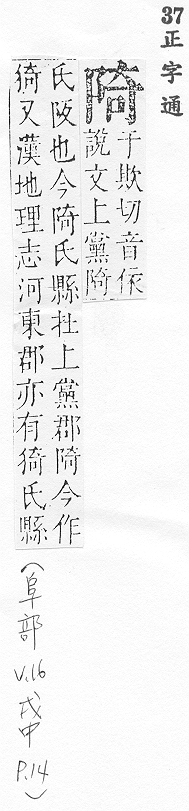 37 正字通
陭
于欺切音依
說文上黨陭
氏阪也今陭氏縣在上黨郡陭今作
猗又漢地理志河東郡亦有猗氏縣
(阜部 V.16 戌中 P.14)